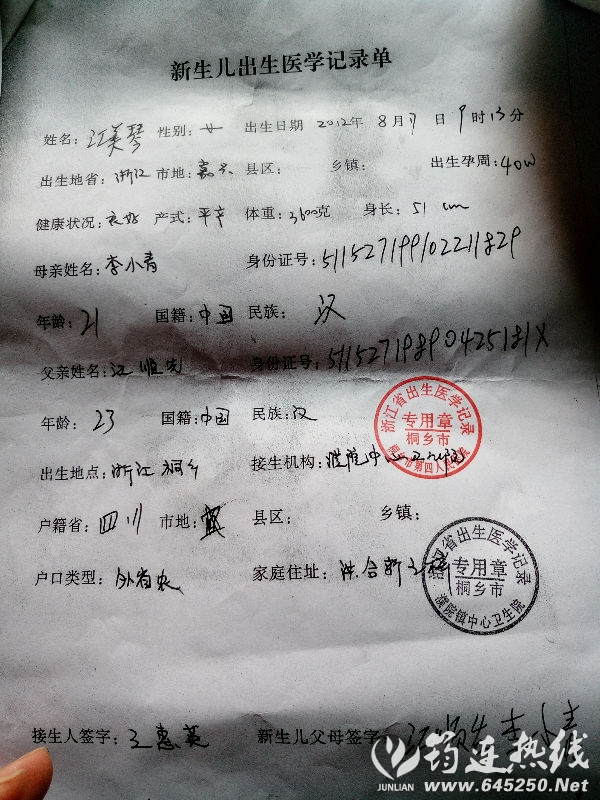 新生儿出生医学记录单
姓名：江美琴 性别：女 出生日期 2012年 8月7日9时13分
出生地省：浙江 市地：嘉兴 县区： 乡镇： 出生孕周：40W
健康状况：良好 产式：平产 体重：3600克 身长：51cm
母亲姓名：李小青 身份证号：511527199102211829
年龄：21 国籍：中国 民族：汉
父亲姓名：江顺先 身份证号：51152719890425181X
年龄：23 国籍：中国 民族：汉
浙江省出生医学记录
专用章
桐乡市
桐乡市第四人民医院
出生地点：浙江桐乡 接生机构：濮院中心卫生院
户籍省：四川 市地： 县区： 乡镇：
浙江省出生医学记录
专用章
桐乡市
濮院镇中心卫生院
户口类型：外省农 家庭住址：洪合
接生人签字：王惠英 新生儿父母签字：江顺先 李小青
筠连热线
JUNLIAN www.645250.Net